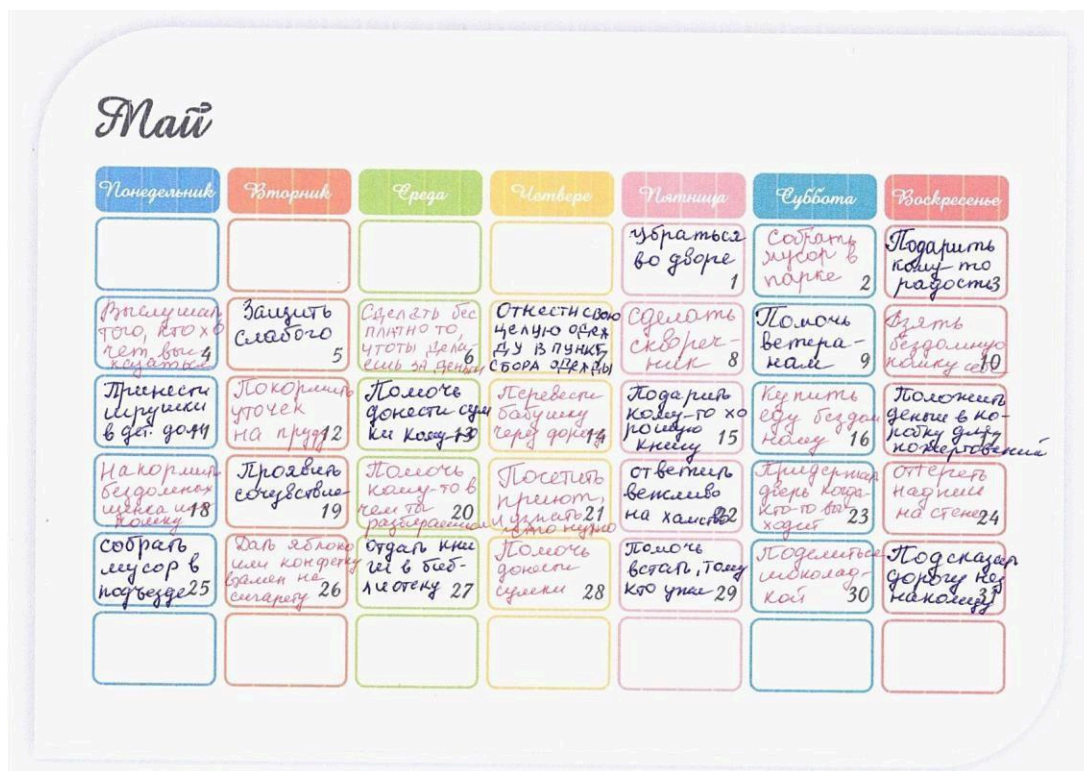 Май
Понедельник Вторник Среда Четверг Пятница Суббота Воскресенье
убраться
во дворе
1
Собрать
мусор в
парке
2
Подарить
кому-то
радость
3
Выслушать
того, кто хо
чет выс
4
Защить
слабого
5
Сделать бес
платно то,
что ты дела
ешь за деньги
6
Отнести свою
целую одеж
ду в пункт
сбора одежды
7
сделать
сквореч-
ник
8
Помочь
ветера-
нам
9
Взять
бездомную
кошку себе
10
Принести
игрушки
в дет. дом
11
Покормить
уточек
на пруду
12
Помочь
донести сум
ки кому-то
13
Перевести
бабушку
через дорогу
14
Подарить
кому-то хо
рошую
книгу
15
Купить
еду бездом
ному
16
Положить
деньги в ко-
робку для
пожертвований
17
Накормить
бездомных
щенка или
кошку
18
Проявить
сочувствие
19
Помочь
кому-то в
чем ты
разбираешься
20
Посетить
приют,
и узнать
что нужно
21
ответить
вежливо
на хамство
22
Придержать
дверь когда
кто-то вы
ходит
23
оттереть
надписи
на стене
24
собрать
мусор в
подъезде
25
Дать яблоко
или конфетку
взамен на
сигарету
26
Отдать кни
ги в биб-
лиотеку
27
Помочь
донести
сумки
28
Помочь
встать, тому
кто упал
29
Поделиться
шоколад-
кой
30
Подсказать
дорогу нез
накомцу
31